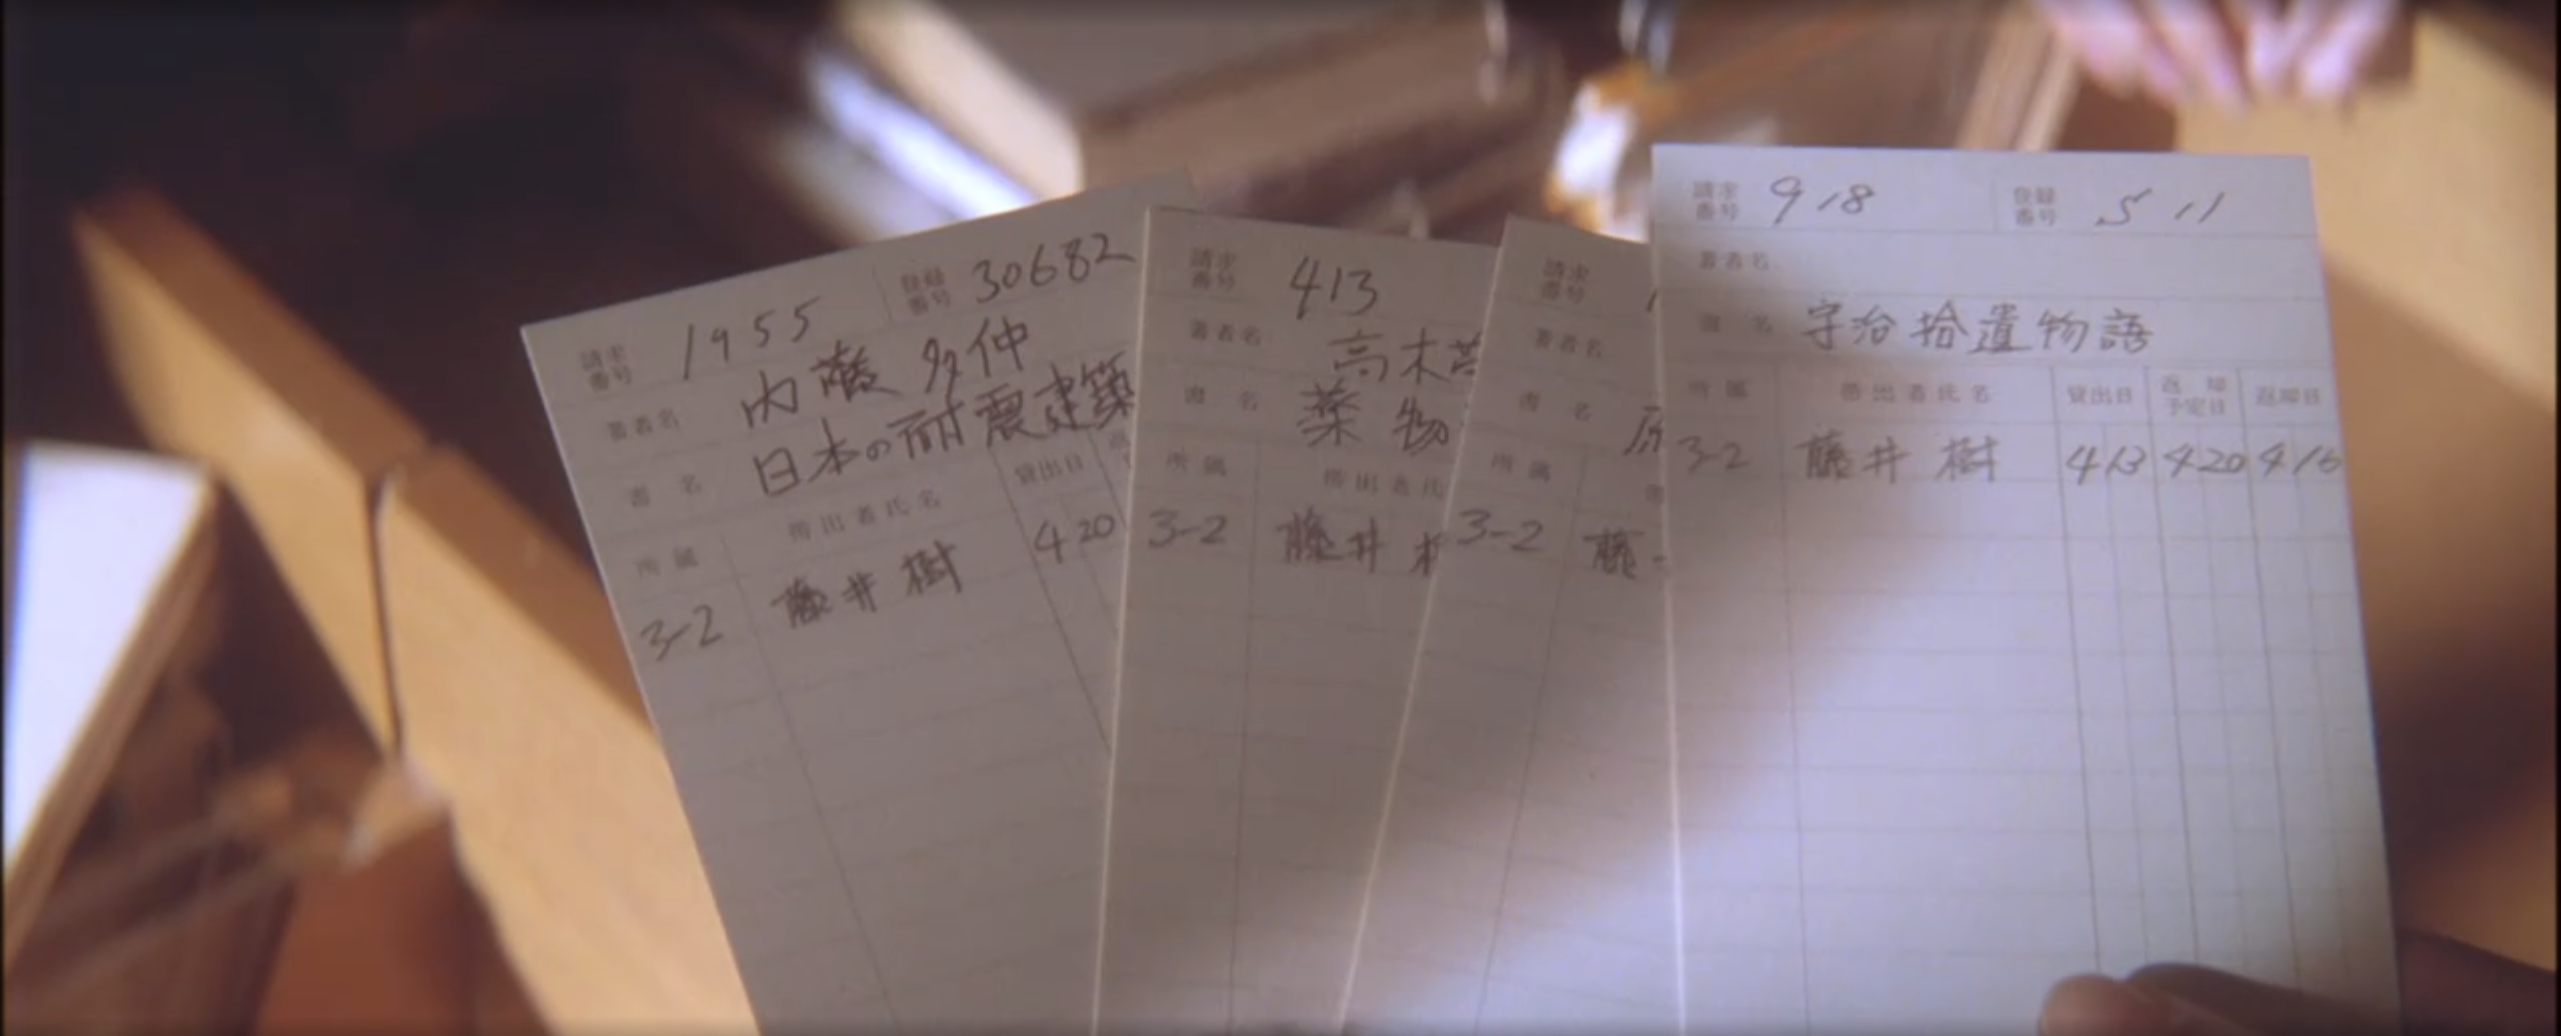 請求番号 1955 登録番号 30682
著者名 内藤 多仲
書名 日本の耐震建築
所属 帯出者氏名 貸出日
3-2 藤井 樹 4 20
請求番号 413
著者名 高木
書名 薬物
所属 帯出者氏
3-2 藤井
請求番号
著者名
書名
所属
3-2 藤
請求番号 918 登録番号 511
著者名
書名 宇治拾遺物語
所属 帯出者氏名 貸出日 返却予定日 返却日
3-2 藤井 樹 4 13 4 20 4 16